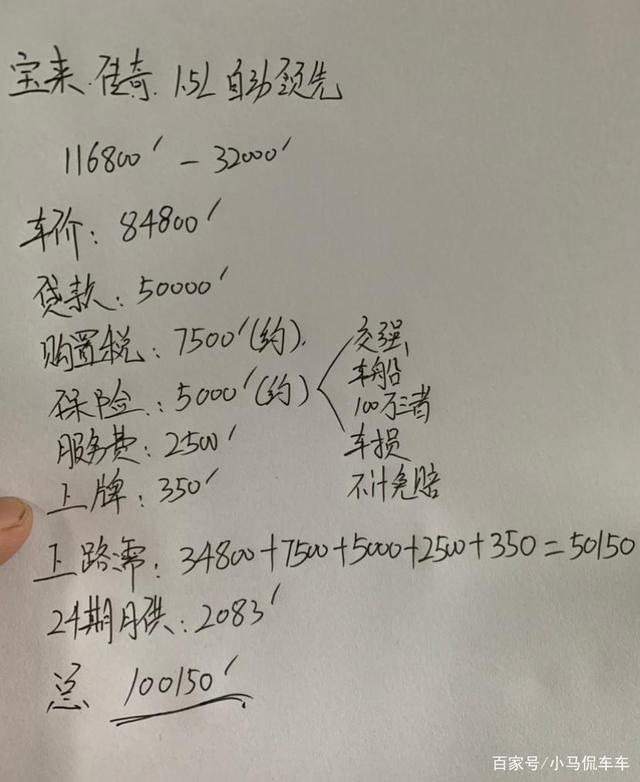 宝来·传奇 1.5L自动领先
116800′ - 32000′
车价: 84800′
贷款: 50000′
购置税: 7500′(约).
保险: 5000′(约)
交强
车船
100万三者
车损
不计免赔
服务费: 2500′
上牌: 350′
上路需: 34800+7500+5000+2500+350=50150
24期月供: 2083′
总 100150′
百家号/小马侃车车